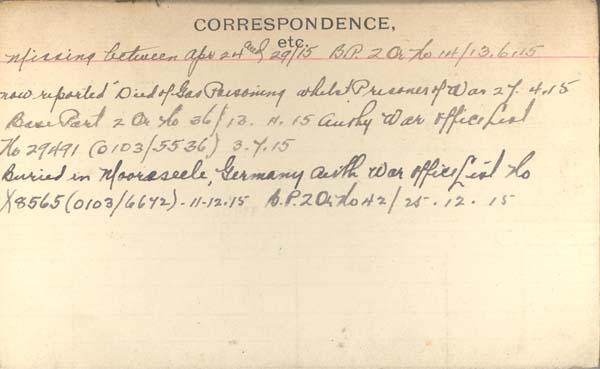 CORRESPONDENCE,
etc.
Missing between Apr 24 and 29/15 B.P. 2 Or No 14/13.6.15
now reported "Died of Gas Poisoning whilst Prisoner of War 27.4.15
Base Part 2 Or No 36/13.11.15 Authy War Office List
No 29491 (0103/5536) 3.7.15
Buried in Mooraseele, Germany Auth War Office List No
X8565 (0103/6672) - 11-12.15 B.P. 2 Or No 42/25.12.15